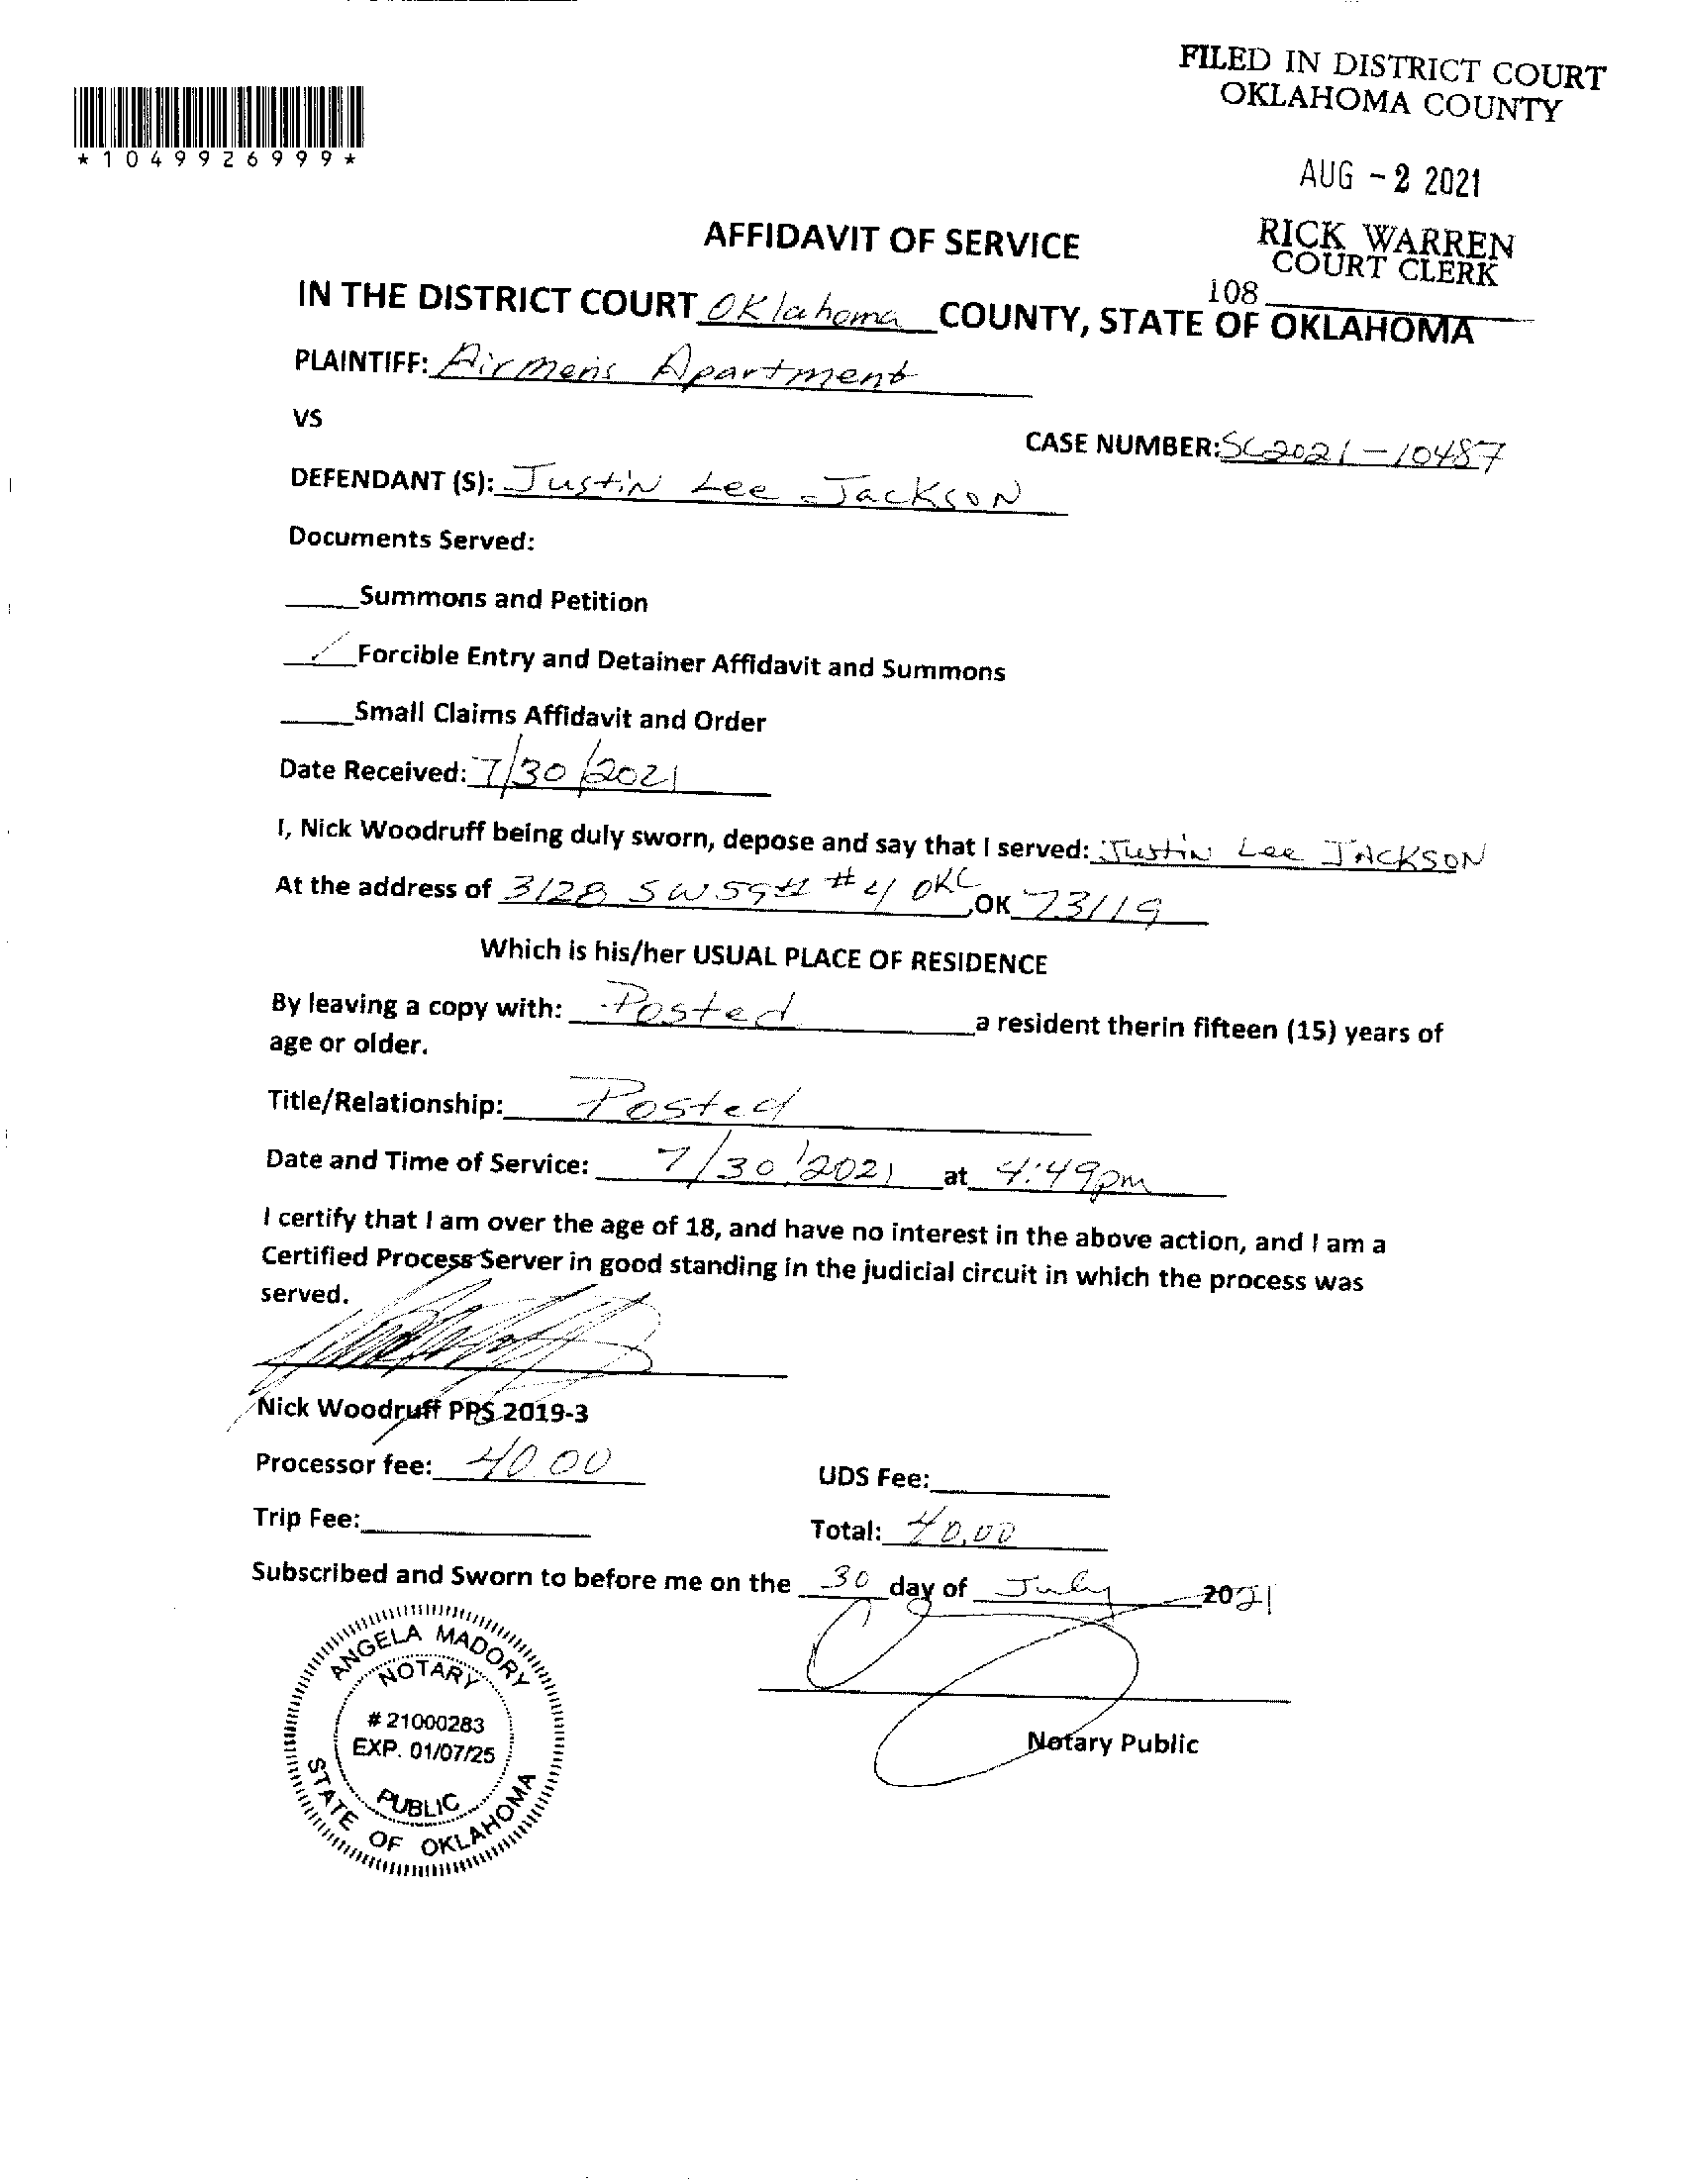 FILED IN DISTRICT COURT
OKLAHOMA COUNTY
*1049926999*
AUG -2 2021
RICK WARREN
COURT CLERK
108
AFFIDAVIT OF SERVICE
IN THE DISTRICT COURT Oklahoma COUNTY, STATE OF OKLAHOMA
PLAINTIFF: Airmens Apartment
VS
CASE NUMBER: SC2021-10487
DEFENDANT (S): Justin Lee Jackson
Documents Served:
Summons and Petition
/ Forcible Entry and Detainer Affidavit and Summons
Small Claims Affidavit and Order
Date Received: 7/30/2021
I, Nick Woodruff being duly sworn, depose and say that I served: Justin Lee JACKSON
At the address of SW 59th #4 OKC, OK 73119
Which is his/her USUAL PLACE OF RESIDENCE
By leaving a copy with: Posted a resident therin fifteen (15) years of
age or older.
Title/Relationship: Posted
Date and Time of Service: 7/30/2021 at 4:49pm
I certify that I am over the age of 18, and have no interest in the above action, and I am a
Certified Process Server in good standing in the judicial circuit in which the process was
served.
Nick Woodruff PPS 2019-3
Processor fee: 40.00
UDS Fee:
Trip Fee:
Total: 40.00
Subscribed and Sworn to before me on the 30 day of July 2021
ANGELA MADORY
NOTARY
# 21000283
EXP. 01/07/25
PUBLIC
STATE OF OKLAHOMA
Notary Public